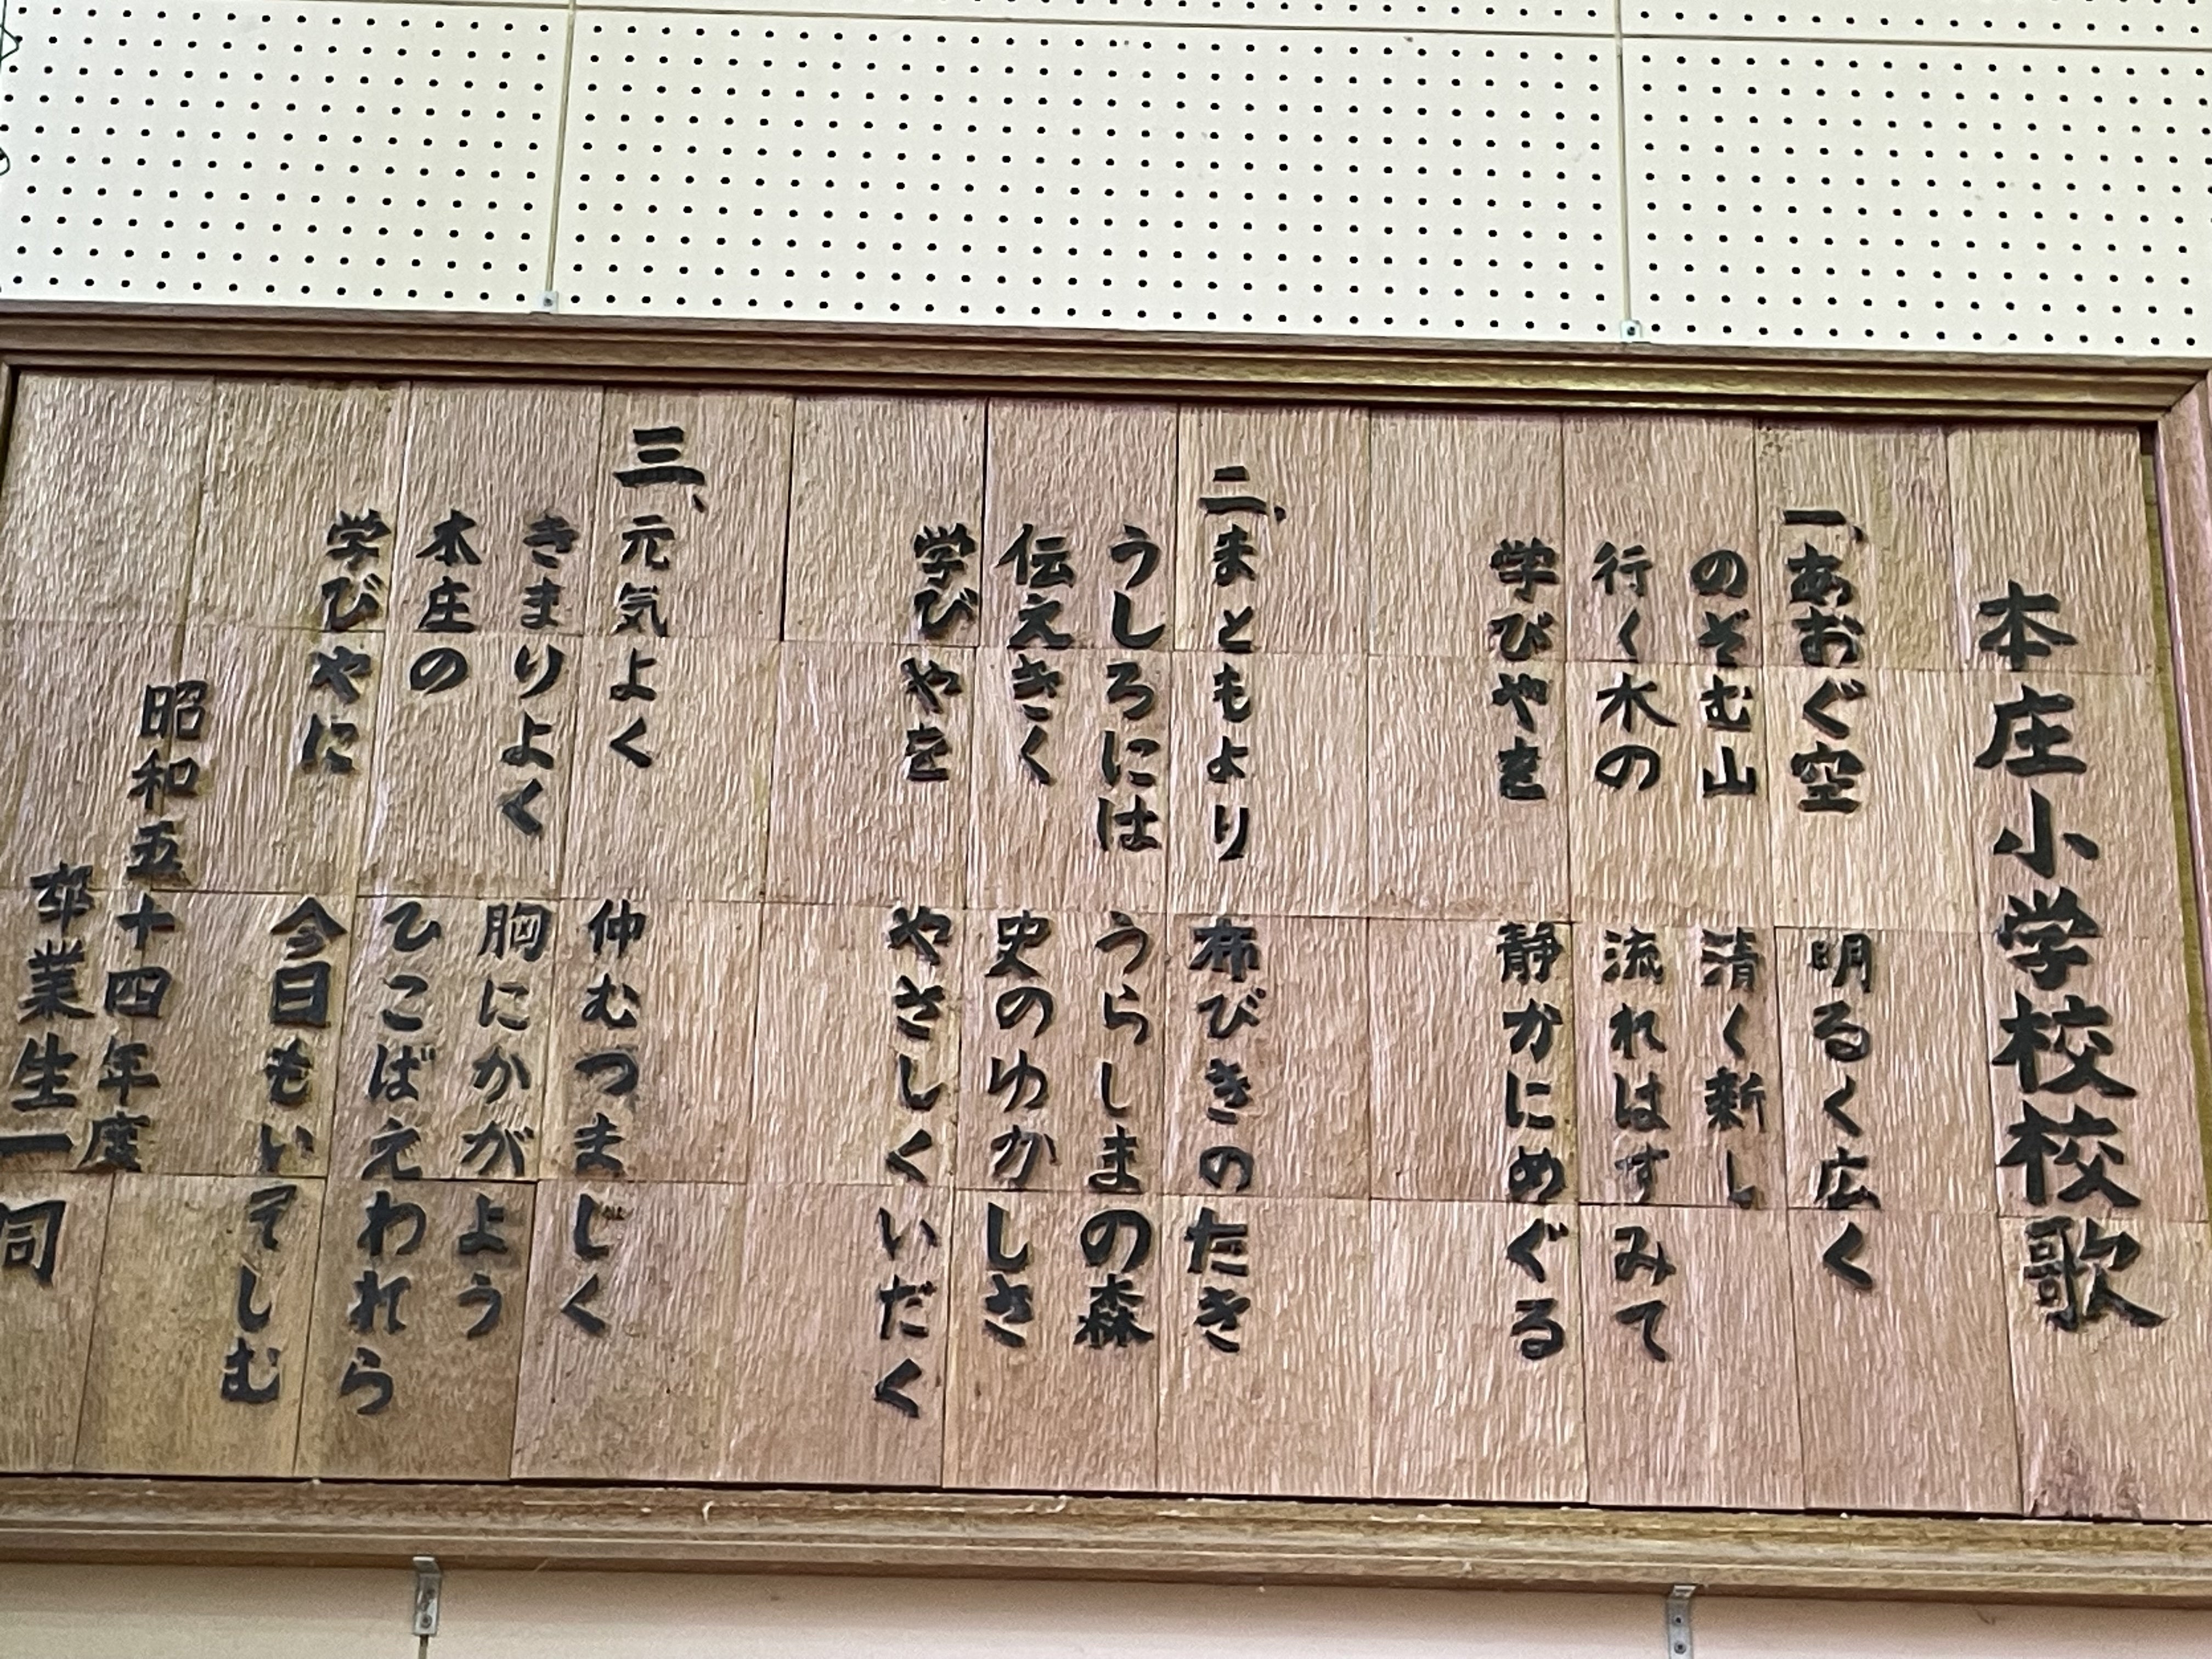 本庄小学校校歌
一、あおぐ空 明るく広く
のぞむ山 清く新し
行く水の 流れはすみて
学びやを 静かにめぐる
二、まともより 布びきのたき
うしろには うらしまの森
伝えきく 史のゆかしさ
学びやを やさしくいだく
三、元気よく 仲むつまじく
きまりよく 胸にかがよう
本庄の ひこばえわれら
学びやに 今日もいそしむ
昭和五十四年度
卒業生一同